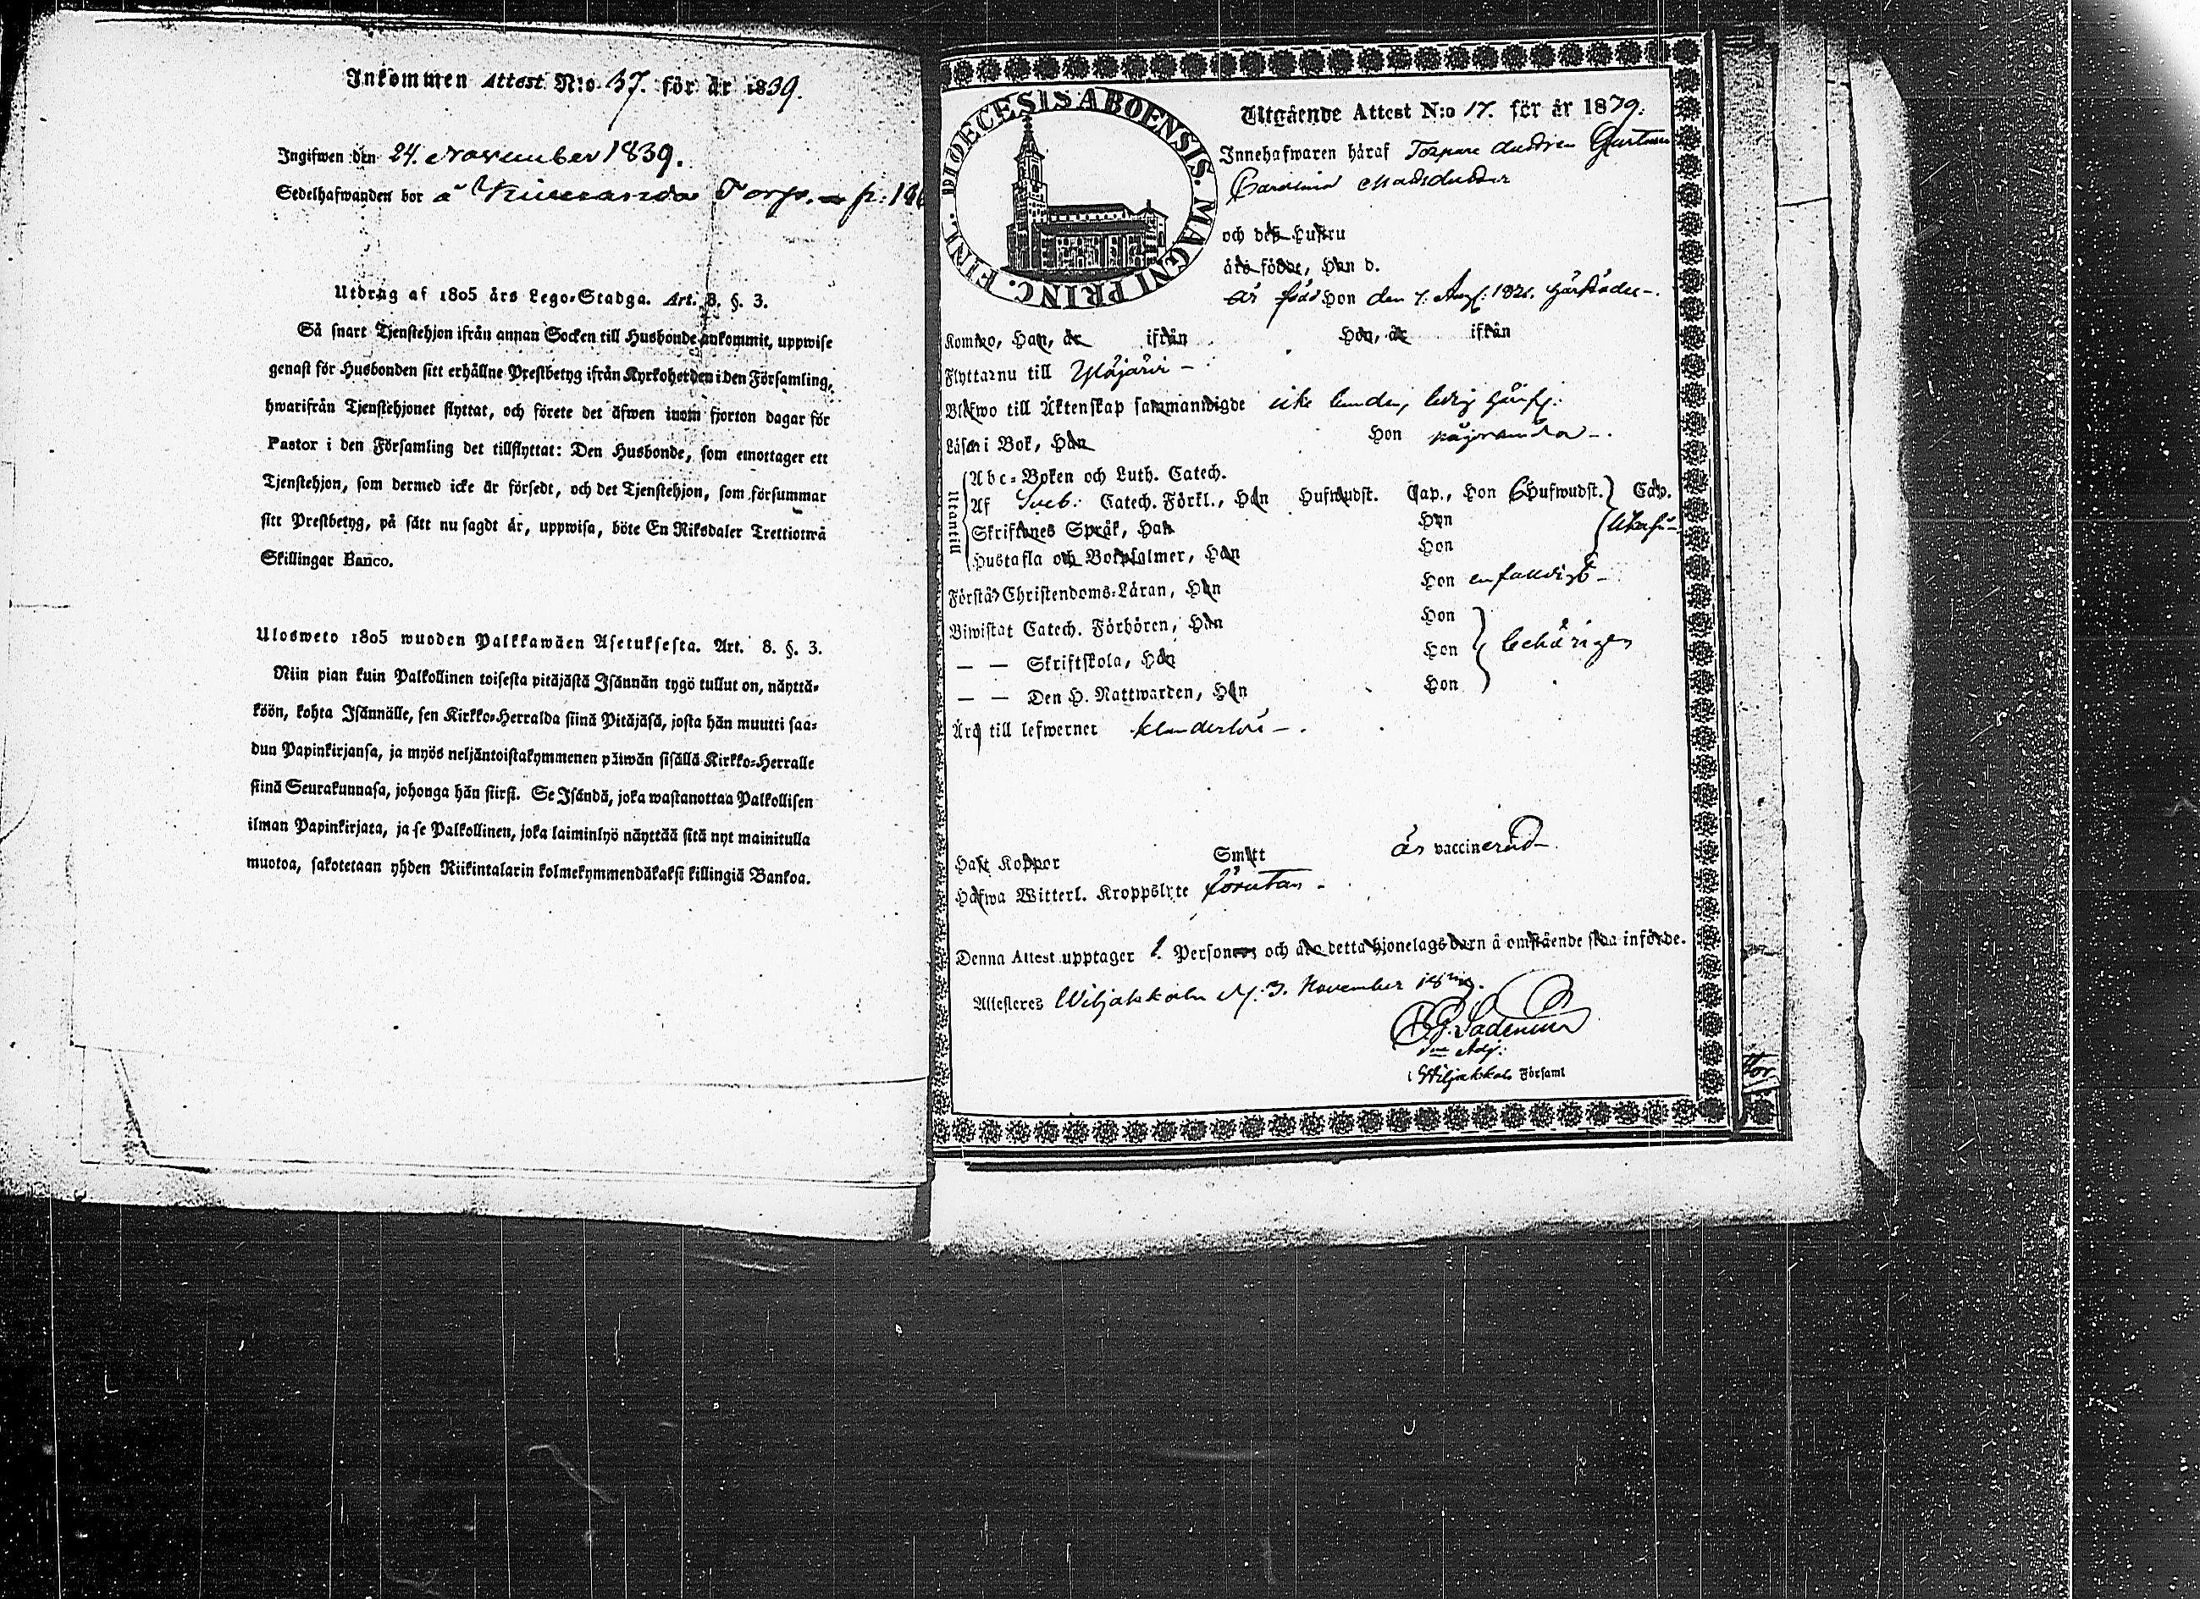 Inkommen Attest N:o 37. för år 1839.
Ingifwen den 24. November 1839.
Sedelhafwanden bor å Torp. p:
Utdrag af 1805 års Lego-Stadga. Art. 8. §. 3.
Så snart Tjenstehjon ifrån annan Socken till Husbonde ankommit, uppwise
genast för Husbonden sitt erhållne Prestbetyg ifrån Kyrkoherden i den Församling,
hwarifrån Tjenstehjonet flyttat, och förete det äfwen inom fjorton dagar för
Pastor i den Församling det tillflyttat: Den Husbonde, som emottager ett
Tjenstehjon, som dermed icke är försedt, och det Tjenstehjon, som försummar
sitt Prestbetyg, på sätt nu sagdt är, uppwisa, böte En Riksdaler Trettiotwå
Skillingar Banco.
Ulosweto 1805 wuoden Palkkawäen Asetuksesta. Art. 8. §. 3.
Niin pian kuin Palkollinen toisesta pitäjästä Isännän tygö tullut on, näyttä-
köön, kohta Isännälle, sen Kirkko-Herralda siinä Pitäjäsä, josta hän muutti saa-
dun Papinkirjansa, ja myös neljäntoistakymmenen päiwän sisällä Kirkko-Herralle
siinä Seurakunnasa, johonga hän siirsi. Se Isändä, joka wastanottaa Palkollisen
ilman Papinkirjata, ja se Palkollinen, joka laiminlyö näyttää sitä nyt mainitulla
muotoa, sakotetaan yhden Riikintalarin kolmekymmendäkaksi killingiä Bankoa.
DIOECESIS ABOENSIS. MAGNI PRINC. FINL.
Utgående Attest N:o 17. för år 1839.
Innehafwaren häraf Torpare dottren
Carolina Madsdotter
och des Hustru
äro födde, Han d.
är född Hon den 7. Aug: 1821. härstädes.
Kommo, Han, år ifrån Hon, år ifrån
Flyttar nu till Ylöjärvi
Blefwo till Äktenskap sammanwigde
Läsa i Bok, Han Hon någorlunda
Utantill
Abc-Boken och Luth. Catech.
Af Sveb: Catech. Förkl., Han Hufwudst. Cap., Hon 6 Hufwudst. Cap.
Skriftenes Språk, Han Hon
Hustafla och Botpsalmer, Han Hon
Förstå Christendoms-Läran, Han Hon enfaldigt
Biwistat Catech. Förhören, Han Hon
— — Skriftskola, Han Hon behörigen
— — Den H. Nattwarden, Han Hon
Äro till lefwernet klanderlös
Haft Koppor Smitt är vaccinerad
Hafwa Witterl. Kroppslyte förutan
Denna Attest upptager 1. Personer och äro detta hjonelags barn å omstående sida införde.
Attesteres Wiljakkala d. 3. November 1839.
i Wiljakkala Församl